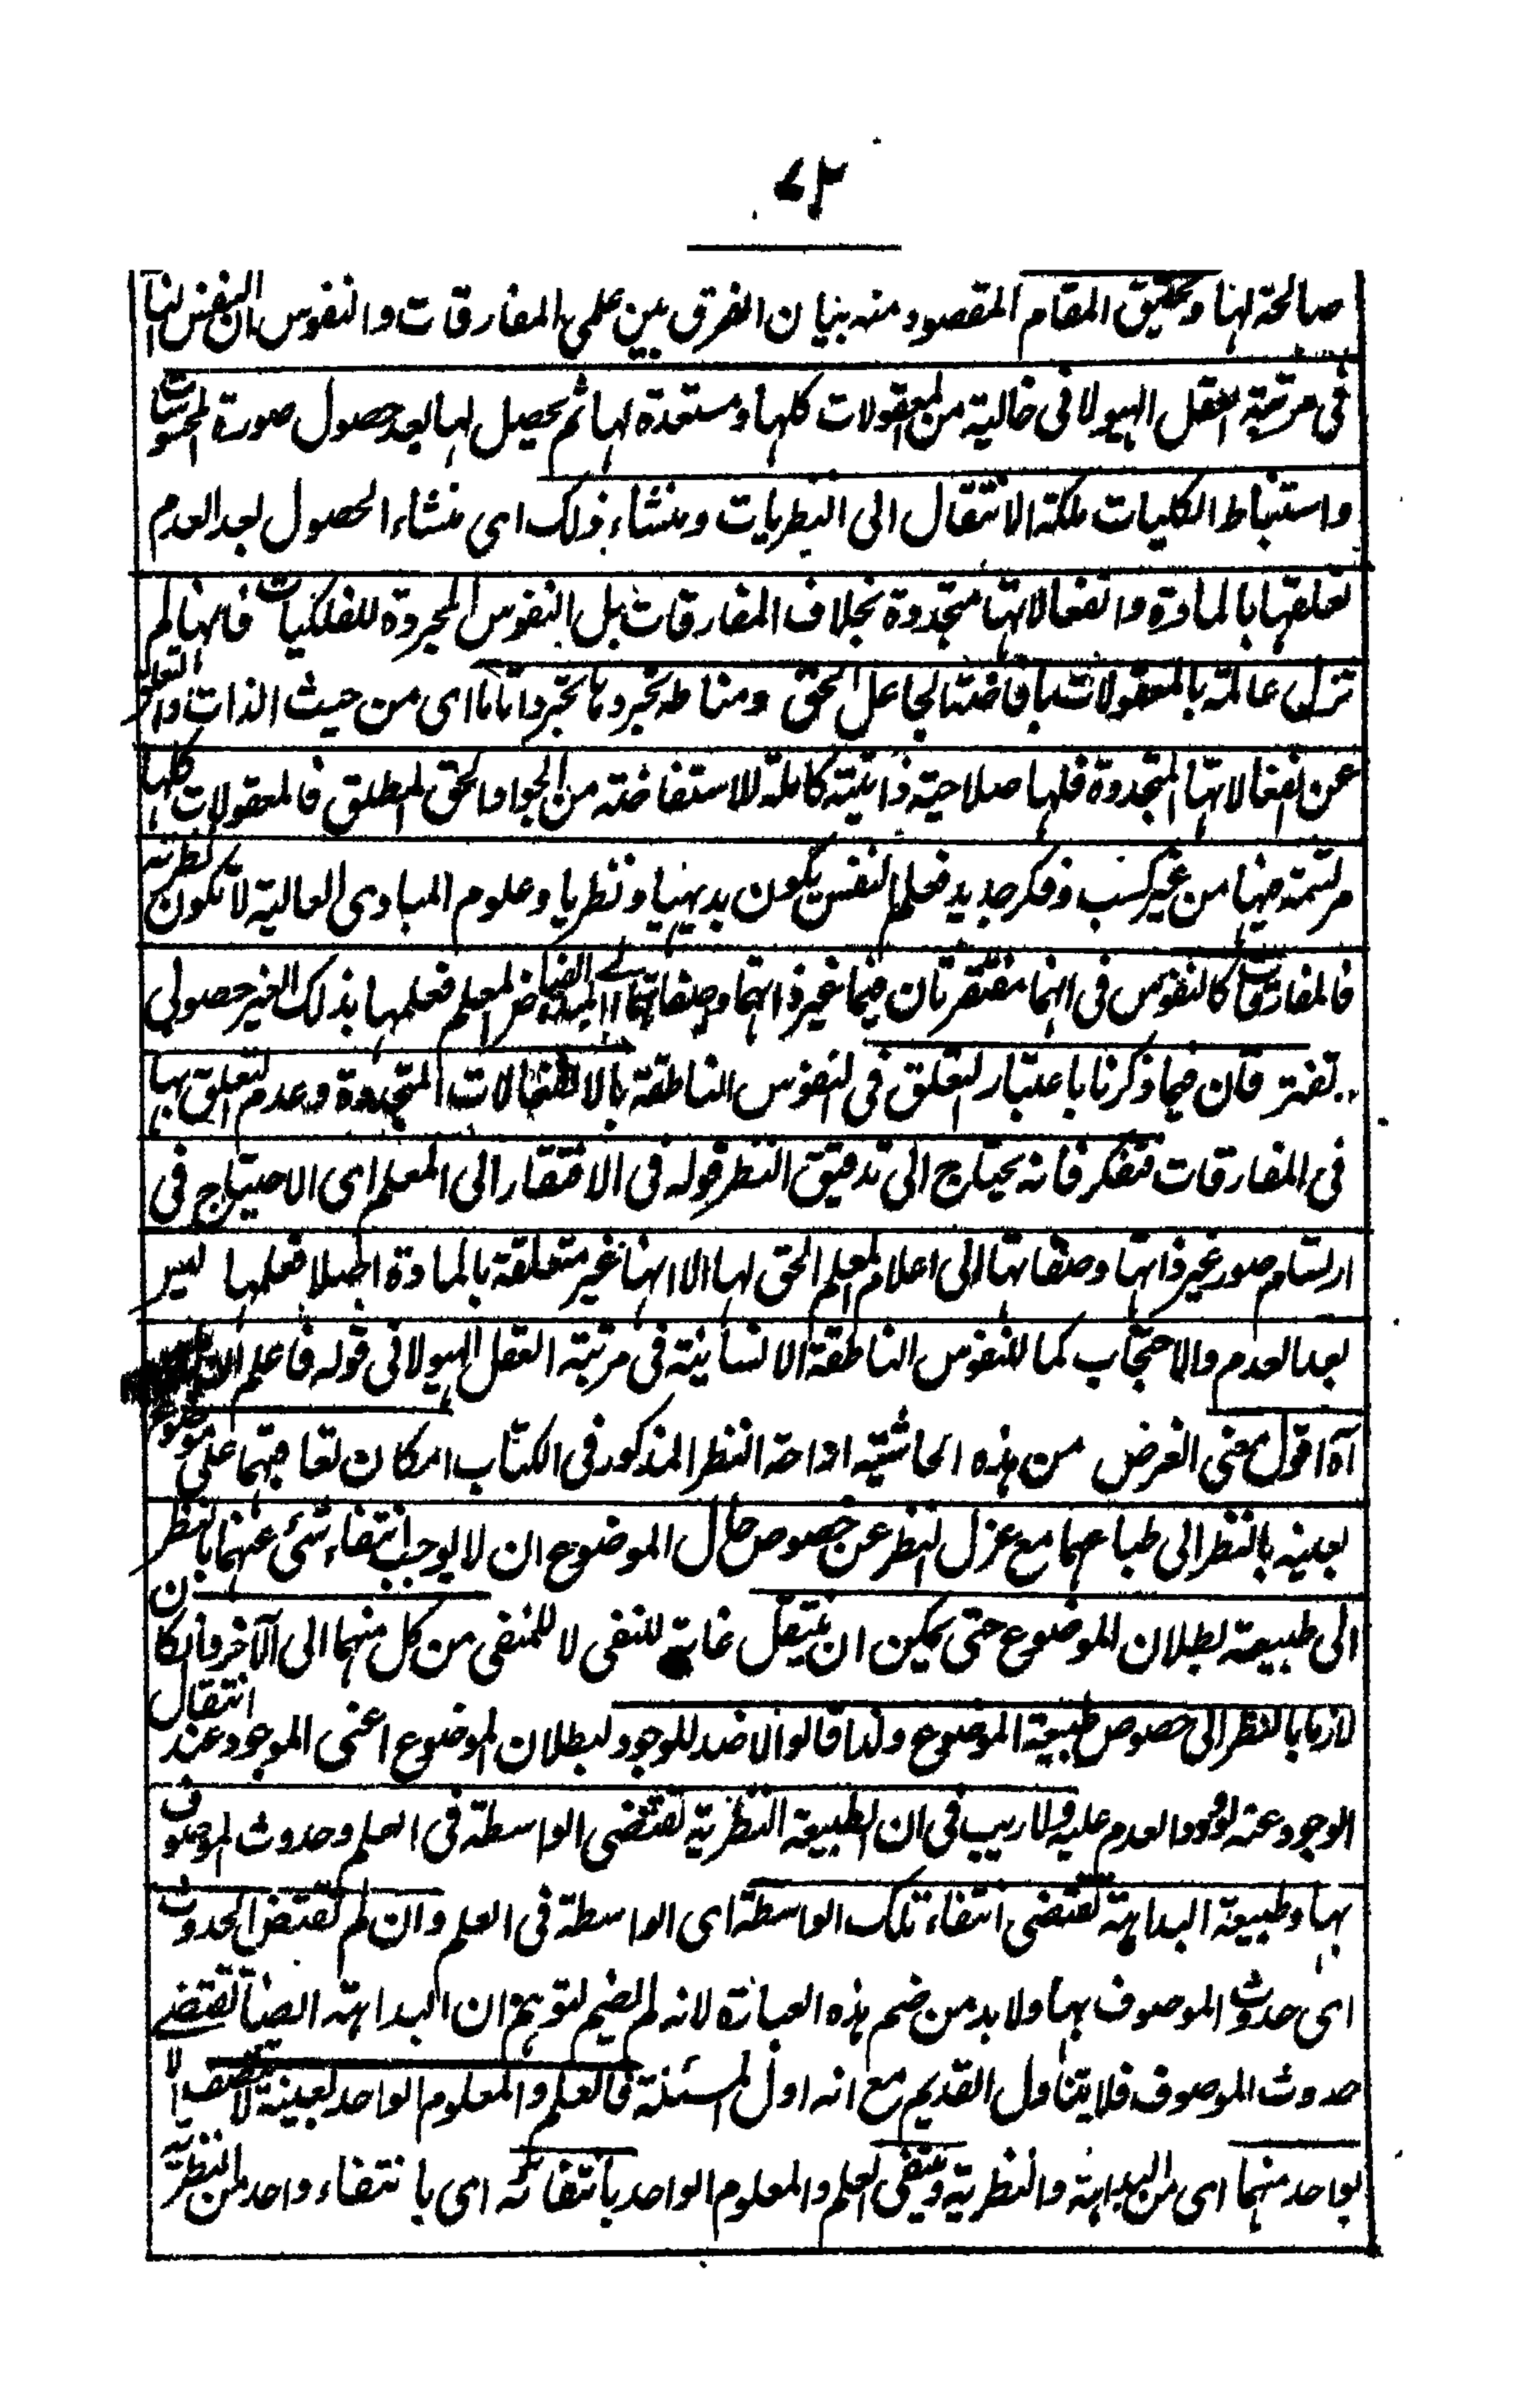 ٧٢
صالحة لهنا وتحقيق المقام المقصود منه بيان الفرق بين علمي المفارقات والنفوس ان النفس لنا
في مرتبة العقل الهيولاني خالية من المعقولات كلها ومستعدة لها ثم يحصل لها بعد حصول صورة المحسوسات
واستنباط الكليات ملكة الانتقال الى النظريات ومنشاء ذلك اى منشاء الحصول بعد العدم
تعلقها بالمادة وانفعالاتها متجددة بخلاف المفارقات بل النفوس المجردة للفلكيات فانها لم
تزل عالمة بالمعقولات بافاضة الجاعل الحق ومناطه تجردها تجردا تاما اى من حيث الذات والتعلق
عن انفعالاتها المتجددة فلها صلاحية ذاتية كاملة للاستفاضة من الجواد الحق المطلق فالمعقولات كلها
مرتسمة فيها من غير كسب وفكر جديد فعلم النفس يكون بديهيا ونظريا وعلوم المبادى العالية لا تكون نظرية
فالمفارقات كالنفوس في انهما مفتقرتان فيما غير ذاتهما وصفاتهما الى المبدء الفياض المعلم فعلمها بذلك الغير حصولي
تفترقان فيما ذكرنا باعتبار التعلق في النفوس الناطقة بالانفعالات المتجددة وعدم التعلق بها
في المفارقات فتفكر فانه يحتاج الى تدقيق النظر قوله في الافتقار الى المعلم اى الاحتياج في
ارتسام صور غير ذاتها وصفاتها الى اعلام المعلم الحق لها الا انها غير متعلقة بالمادة اصلا فعلمها ليس
بعد العدم والاحتجاب كما للنفوس الناطقة الانسانية في مرتبة العقل الهيولاني قوله فاعلم ان
آه اقول معنى الغرض من هذه الحاشية ازاحة النظر المذكور في الكتاب امكان تعاقبهما على موضوع
بعينه بالنظر الى طباعهما مع عزل النظر عن خصوص حال الموضوع ان لا يوجب انتفاء شئ عنهما بالنظر
الى طبيعته بطلان الموضوع حتى يمكن ان ينتقل غاية للنفى لا للمنفى من كل منهما الى الآخر وان كان
لازما بالنظر الى خصوص طبيعة الموضوع ولذا قالوا لا ضد للوجود لبطلان الموضوع اعنى الموجود عند انتقال
الوجود عنه لورود العدم عليه ولا ريب في ان الطبيعة النظرية تقتضى الواسطة في العلم وحدوث الموصوف
بها وطبيعة البداهة تقتضى انتفاء تلك الواسطة اى الواسطة في العلم وان لم تقتض الحدوث
اى حدوث الموصوف بها ولا بد من ضم هذه العبارة لانه لو لم يضم لتوهم ان البداهة ايضا تقتضى
حدوث الموصوف فلا يتناول القديم مع انه اول المسئلة فالعلم والمعلوم الواحد بعينه لا يتصف الا
بواحد منهما اى من البداهة والنظرية وينتفى العلم والمعلوم الواحد بانتفائه اى بانتفاء واحد من النظرية